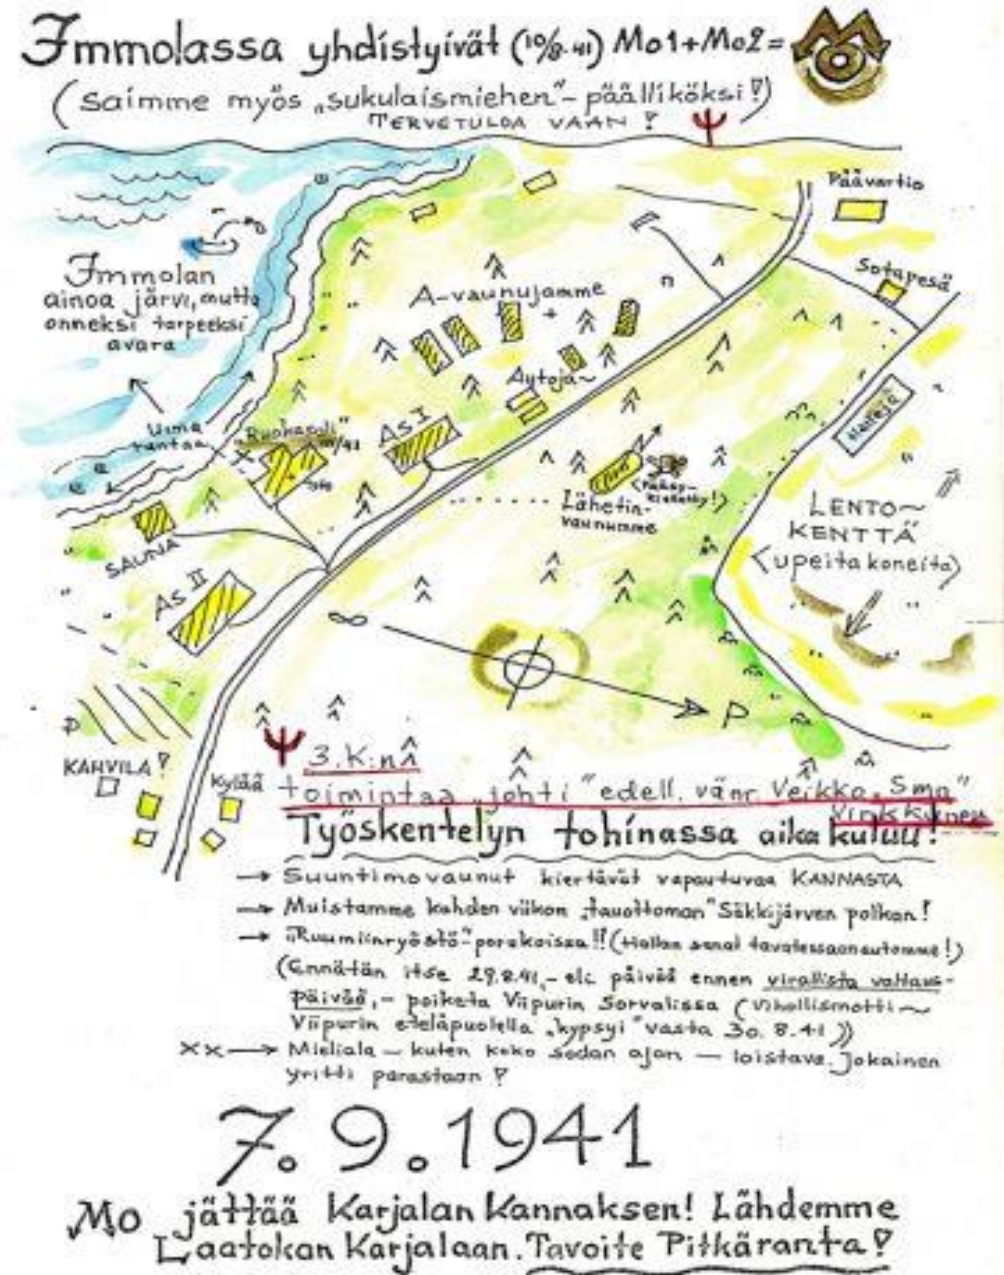 Immolassa yhdistyivät (10/8.41) Mo1+Mo2= MO
(saimme myös „sukulaismiehen"-päälliköksi!)
TERVETULOA VAAN!
Päävartio
Sotapesä
Immolan
ainoa järvi, mutta
onneksi tarpeeksi
avara
A-vaunujamme
+
Autoja~
Halleja
Uima
rantaa
„Ruokasali"
As I
Lähetin-
vaunumme
LENTO~
KENTTÄ
(upeita koneita)
SAUNA
As II
P
KAHVILA!
Kylää
3.K:n
toimintaa „johti" edell. vänr. Veikko „Smp"
Vinkkunen
Työskentelyn tohinassa aika kuluu!
→ Suuntimovaunut kiertävät vapautuvaa KANNASTA
→ Muistamme kahden viikon „tauottoman" Säkkijärven polkan!
→ „Ruumiinryöstö"-porukoissa!! (Hallan sanat tavatessaan automme!)
(Ennätän itse 29.8.41,- eli päivää ennen virallista valtaus-
päivää,- poiketa Viipurin Sorvalissa (Vihollismotti~
Viipurin eteläpuolella „kypsyi" vasta 30.8.41))
xx→ Mieliala - kuten koko sodan ajan - loistava. Jokainen
yritti parastaan!
7.9.1941
Mo jättää Karjalan Kannaksen! Lähdemme
Laatokan Karjalaan. Tavoite Pitkäranta!